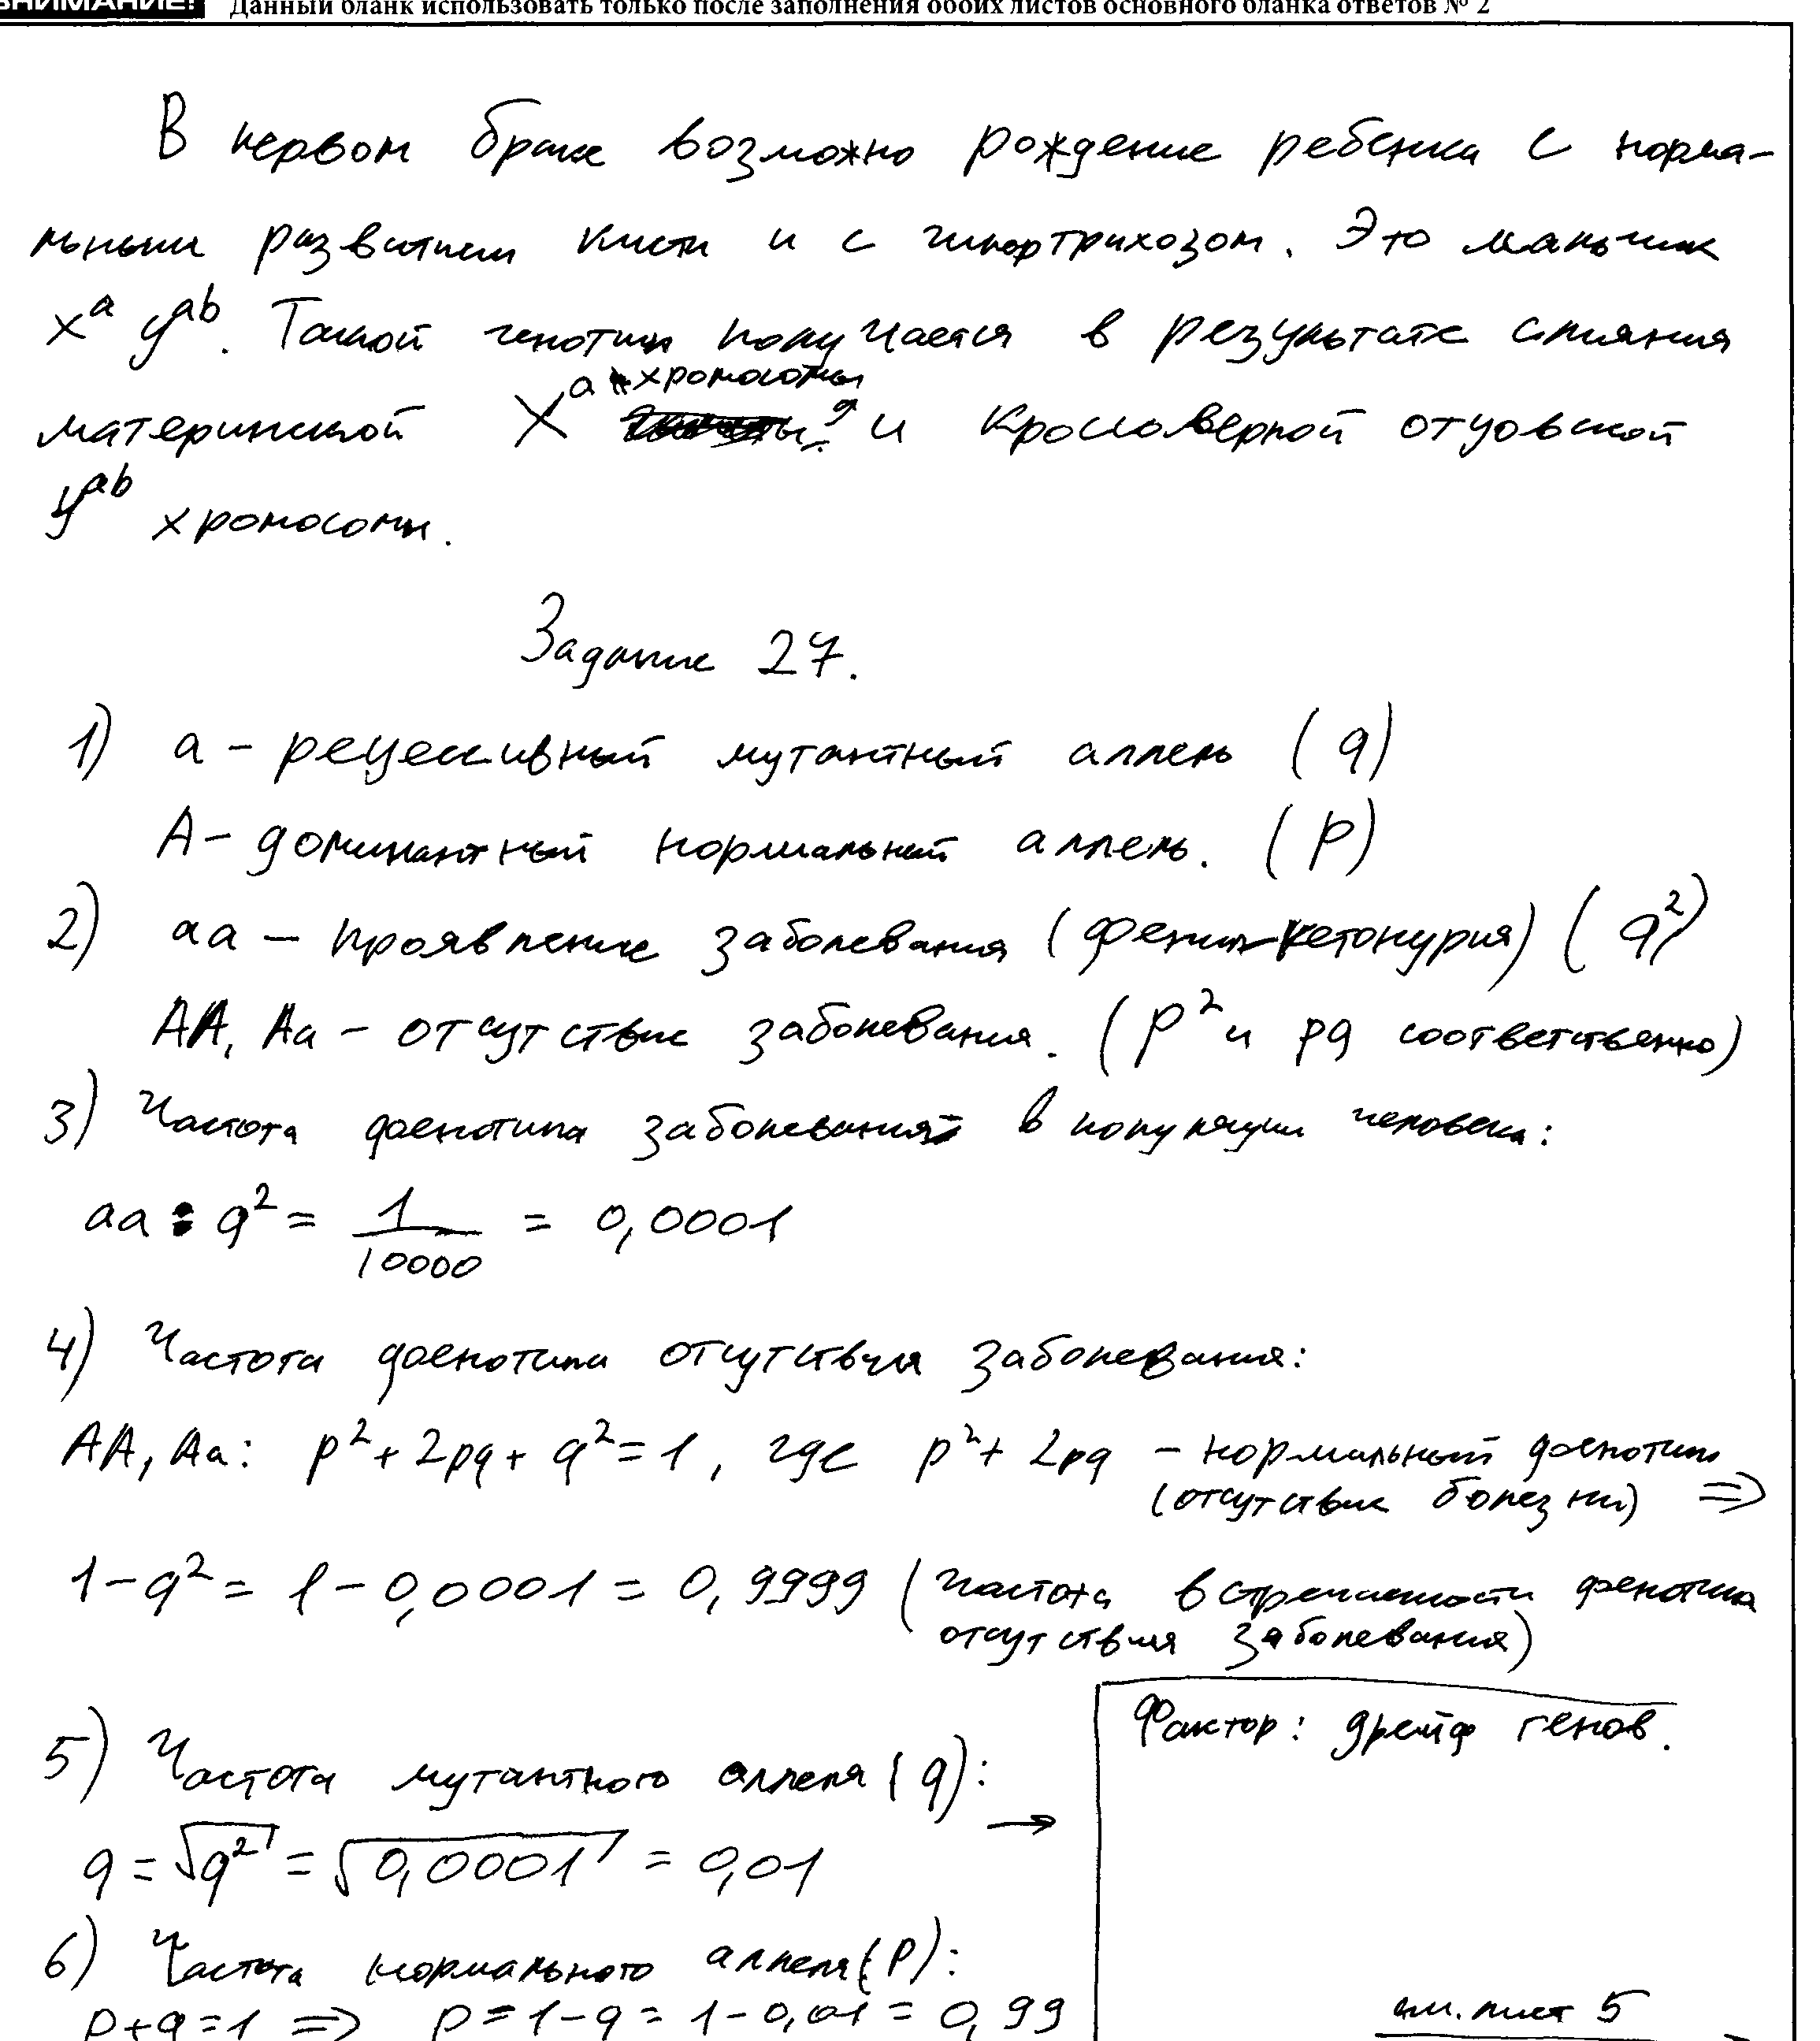 ВНИМАНИЕ! Данный бланк использовать только после заполнения обоих листов основного бланка ответов № 2
В первом браке возможно рождение ребенка с норма-
льным развитием кисти и с гипертрихозом. Это мальчик
X^a Y^ab. Такой генотип получается в результате слияния
материнской X^a хромосомы и кроссоверной отцовской
Y^ab хромосомы.
Задание 27.
1) a – рецессивный мутантный аллель (q)
A – доминантный нормальный аллель. (p)
2) aa – проявление заболевания (фенилкетонурия) (q²)
AA, Aa – отсутствие заболевания. (p² и pq соответственно)
3) Частота фенотипа заболевания в популяции человека:
aa : q² = 1/10000 = 0,0001
4) Частота фенотипа отсутствия заболевания:
AA, Aa: p² + 2pq + q² = 1, где p² + 2pq – нормальный фенотип
(отсутствие болезни) ⇒
1 – q² = 1 – 0,0001 = 0,9999 (частота встречаемости фенотипа
отсутствия заболевания)
5) Частота мутантного аллеля (q): →
q = √q² = √0,0001 = 0,01
6) Частота нормального аллеля (p):
p + q = 1 ⇒ p = 1 – q = 1 – 0,01 = 0,99
Фактор: дрейф генов.
см. лист 5